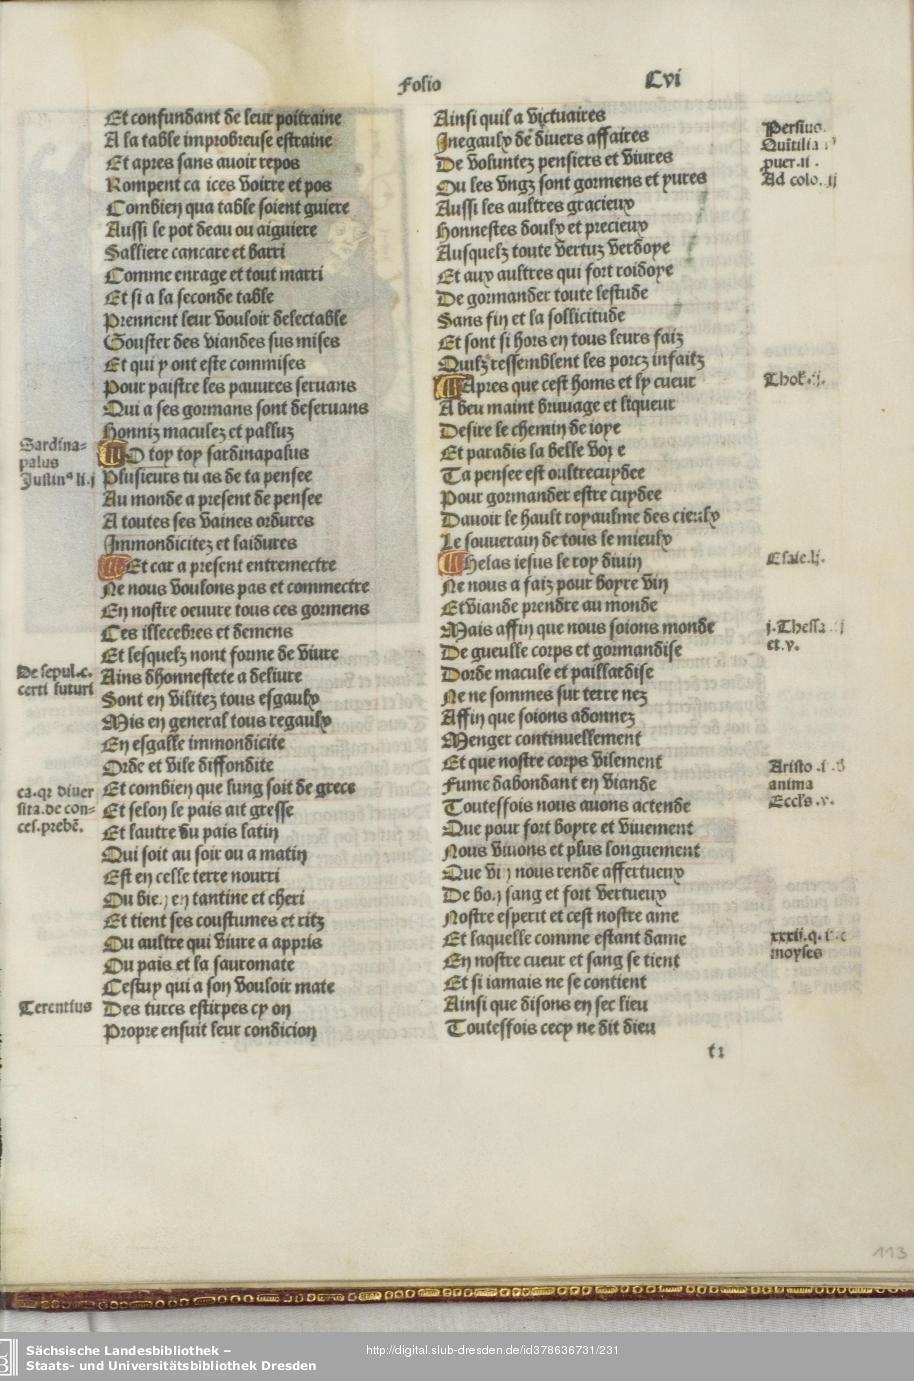 Folio
Cvi
Et confundant de leur poitraine
A la table improbreuse estraine
Et apres sans auoir repos
Rompent ca ices voirre et pos
Combien qua table soient guiere
Aussi le pot deau ou aiguiere
Salliere cancare et barri
Comme enrage et tout marri
Et si a la seconde table
Prennent leur vouloir delectable
Gouster des viandes sus mises
Et qui y ont este commises
Pour paistre les pauures seruans
Qui a ses gormans sont deseruans
Honniz maculez et palluz
O toy toy sardinapalus
Plusieurs tu as de ta pensee
Au monde a present de pensee
A toutes ses vaines ordures
Immondicitez et laidures
Et car a present entremectre
Ne nous voulons pas et commectre
En nostre oeuure tous ces gormens
Ces illecebres et demens
Et lesquelz nont forme de viure
Ains dhonnestete a deliure
Sont en vilitez tous esgaulx
Mis en general tous regaulx
En esgalle immondicite
Orde et vile diffondite
Et combien que lung soit de grece
Et selon le pais art gresse
Et lautre du pais latin
Qui soit au soir ou a matin
Est en celle terre nourri
Ou bie en tantine et cheri
Et tient ses coustumes et ritz
Ou aultre qui viure a appris
Ou pais et la sauromate
Cestuy qui a son vouloir mate
Des turcs estirpes cy on
Propre ensuit leur condicion
Sardina=
palus
Justin⁹ li.j
De sepul.c.
certi futuri
ca.qr diuer
sita.de con=
ces.prebē.
Terentius
Ainsi quil a victuaires
Inegaulx de diuers affaires
De voluntez pensiers et viures
Ou les vngz sont gormens et yures
Aussi les aultres gracieux
Honnestes doulx et precieux
Ausquelz toute vertuz verdoye
Et aux aultres qui fort roidoye
De gormander toute lestude
Sans fin et la sollicitude
Et sont si hors en tous leurs faiz
Quilz ressemblent les porcz infaitz
Apres que cest homs et ly cueur
A beu maint bruuage et liqueur
Desire le chemin de ioye
Et paradis la belle voy e
Ta pensee est oultrecuydee
Pour gormander estre cuydee
Dauoir le hault royaulme des cieulx
Le souuerain de tous le mieulx
Helas iesus le roy diuin
Ne nous a faiz pour boyre vin
Et viande prendre au monde
Mais affin que nous soions monde
De gueulle corps et gormandise
Dorde macule et paillardise
Ne ne sommes sur terre nez
Affin que soions adonnez
Menger continuellement
Et que nostre corps vilement
Fume dabondant en viande
Toutesfois nous auons actende
Que pour fort boyre et viuement
Nous viuons et plus longuement
Que vi nous rende affertueux
De bo sang et fort vertueux
Nostre esperit et cest nostre ame
Et laquelle comme estant dame
En nostre cueur et sang se tient
Et si iamais ne se contient
Ainsi que disons en sec lieu
Toutesfois cecy ne dit dieu
Persius
Quītilia
puer.ii.
Ad colo. ij
Thob.ij.
Esaie.lj.
j.Thessa
et.v.
Aristo
anima
Eccls.v.
xxxii.q.
moyses
113
Sächsische Landesbibliothek –
Staats- und Universitätsbibliothek Dresden
http://digital.slub-dresden.de/id378636731/231